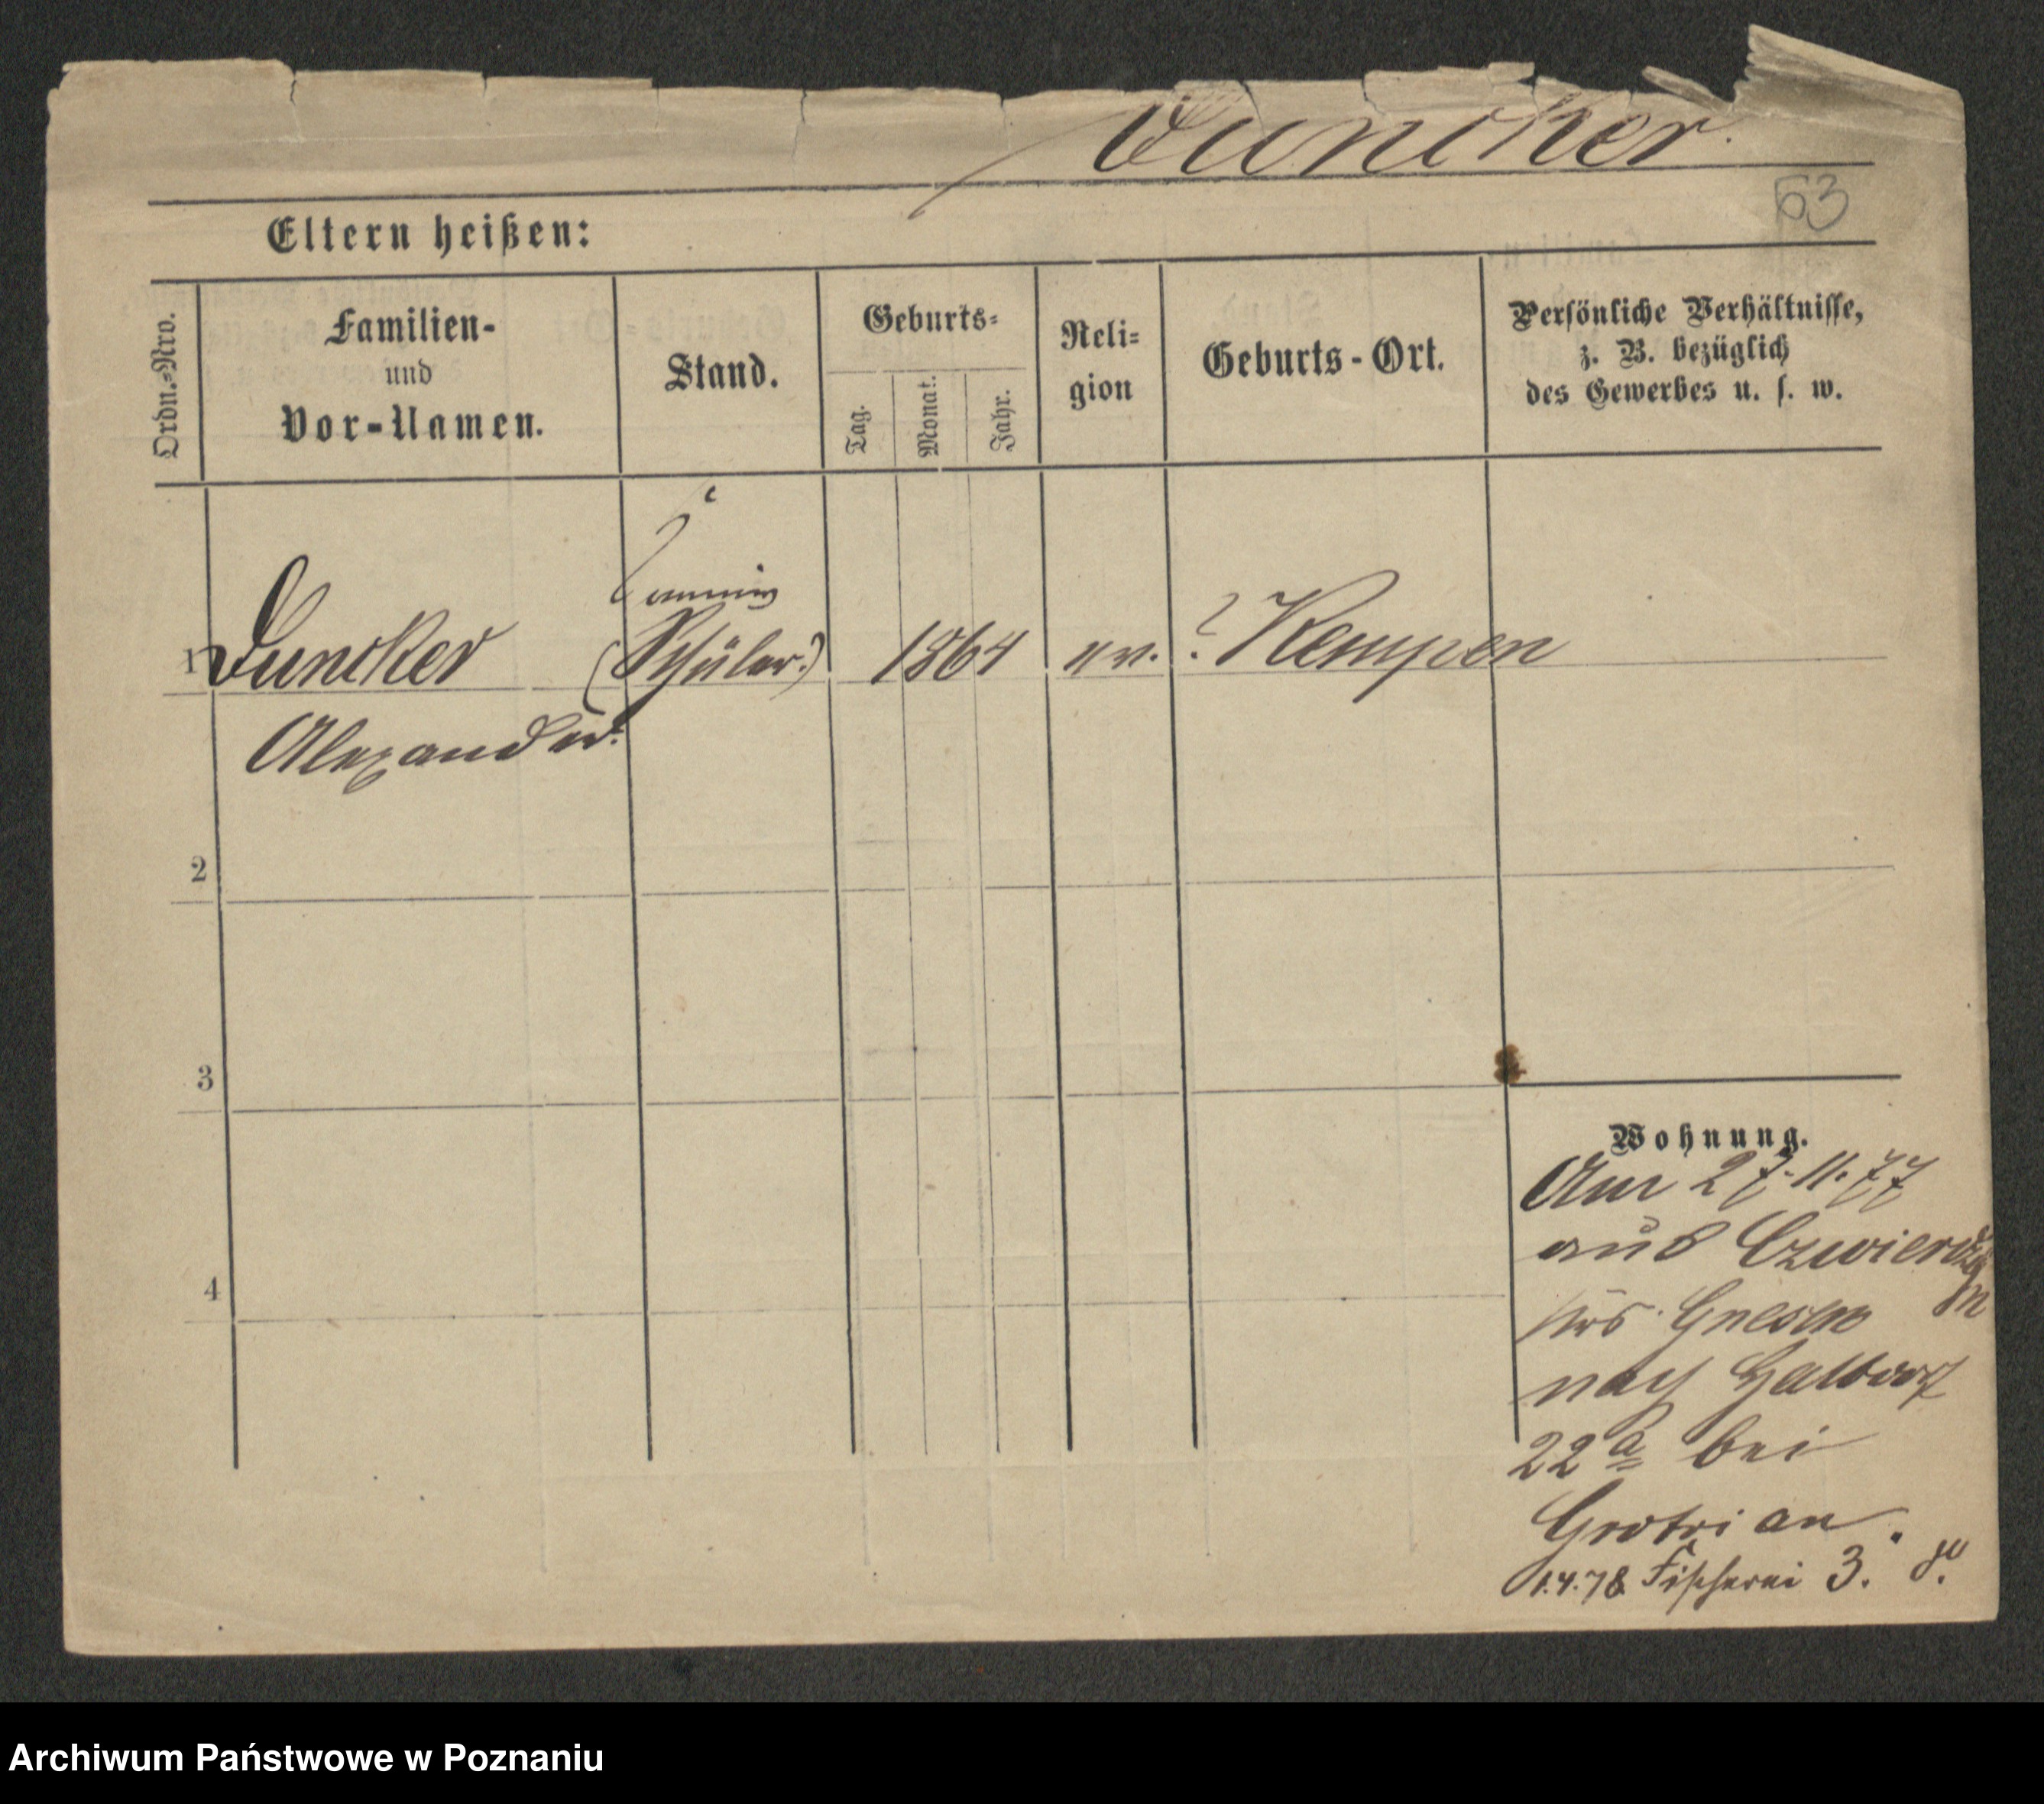 Duncker
53
Eltern heißen:
Ordn.-Nro.
Familien-
und
Vor-Namen.
Stand.
Geburts-
Tag.
Monat.
Jahr.
Reli-
gion
Geburts-Ort.
Persönliche Verhältnisse,
z. B. bezüglich
des Gewerbes u. s. w.
1 Duncker (Schüler.) 1864 ev. ? Kempen
Alexander.
2
3
4
Wohnung.
Am 27.11.77
aus
Krs. Gnesen
nach Halbdorf
22a bei
Grotrian.
1.4.78 Fischerei 3.
Archiwum Państwowe w Poznaniu